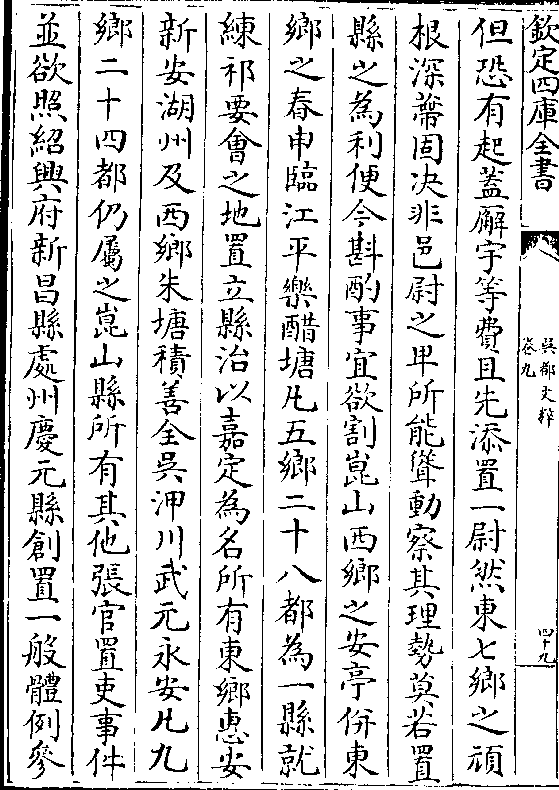 欽定四庫全書
吳都文粹
卷九
四十九
但恐有起蓋廨宇等費且先添置一尉然東七鄉之頑
根深蔕固决非邑尉之卑所能聳動察其理勢莫若置
縣之為利便今斟酌事宜欲割崑山西鄉之安亭併東
鄉之春申臨江平樂醋塘凡五鄉二十八都為一縣就
練祁要會之地置立縣治以嘉定為名所有東鄉惠安
新安湖州及西鄉朱塘積善全吳淠川武元永安凡九
鄉二十四都仍屬之崑山縣所有其他張官置吏事件
並欲照紹興府新昌縣處州慶元縣創置一般體例參